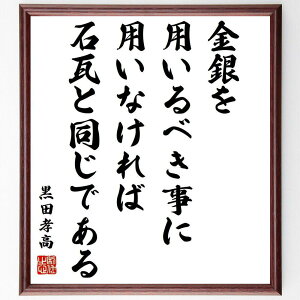 金銀を
用いるべき事に
用いなければ
石瓦と同じである
黒田孝高